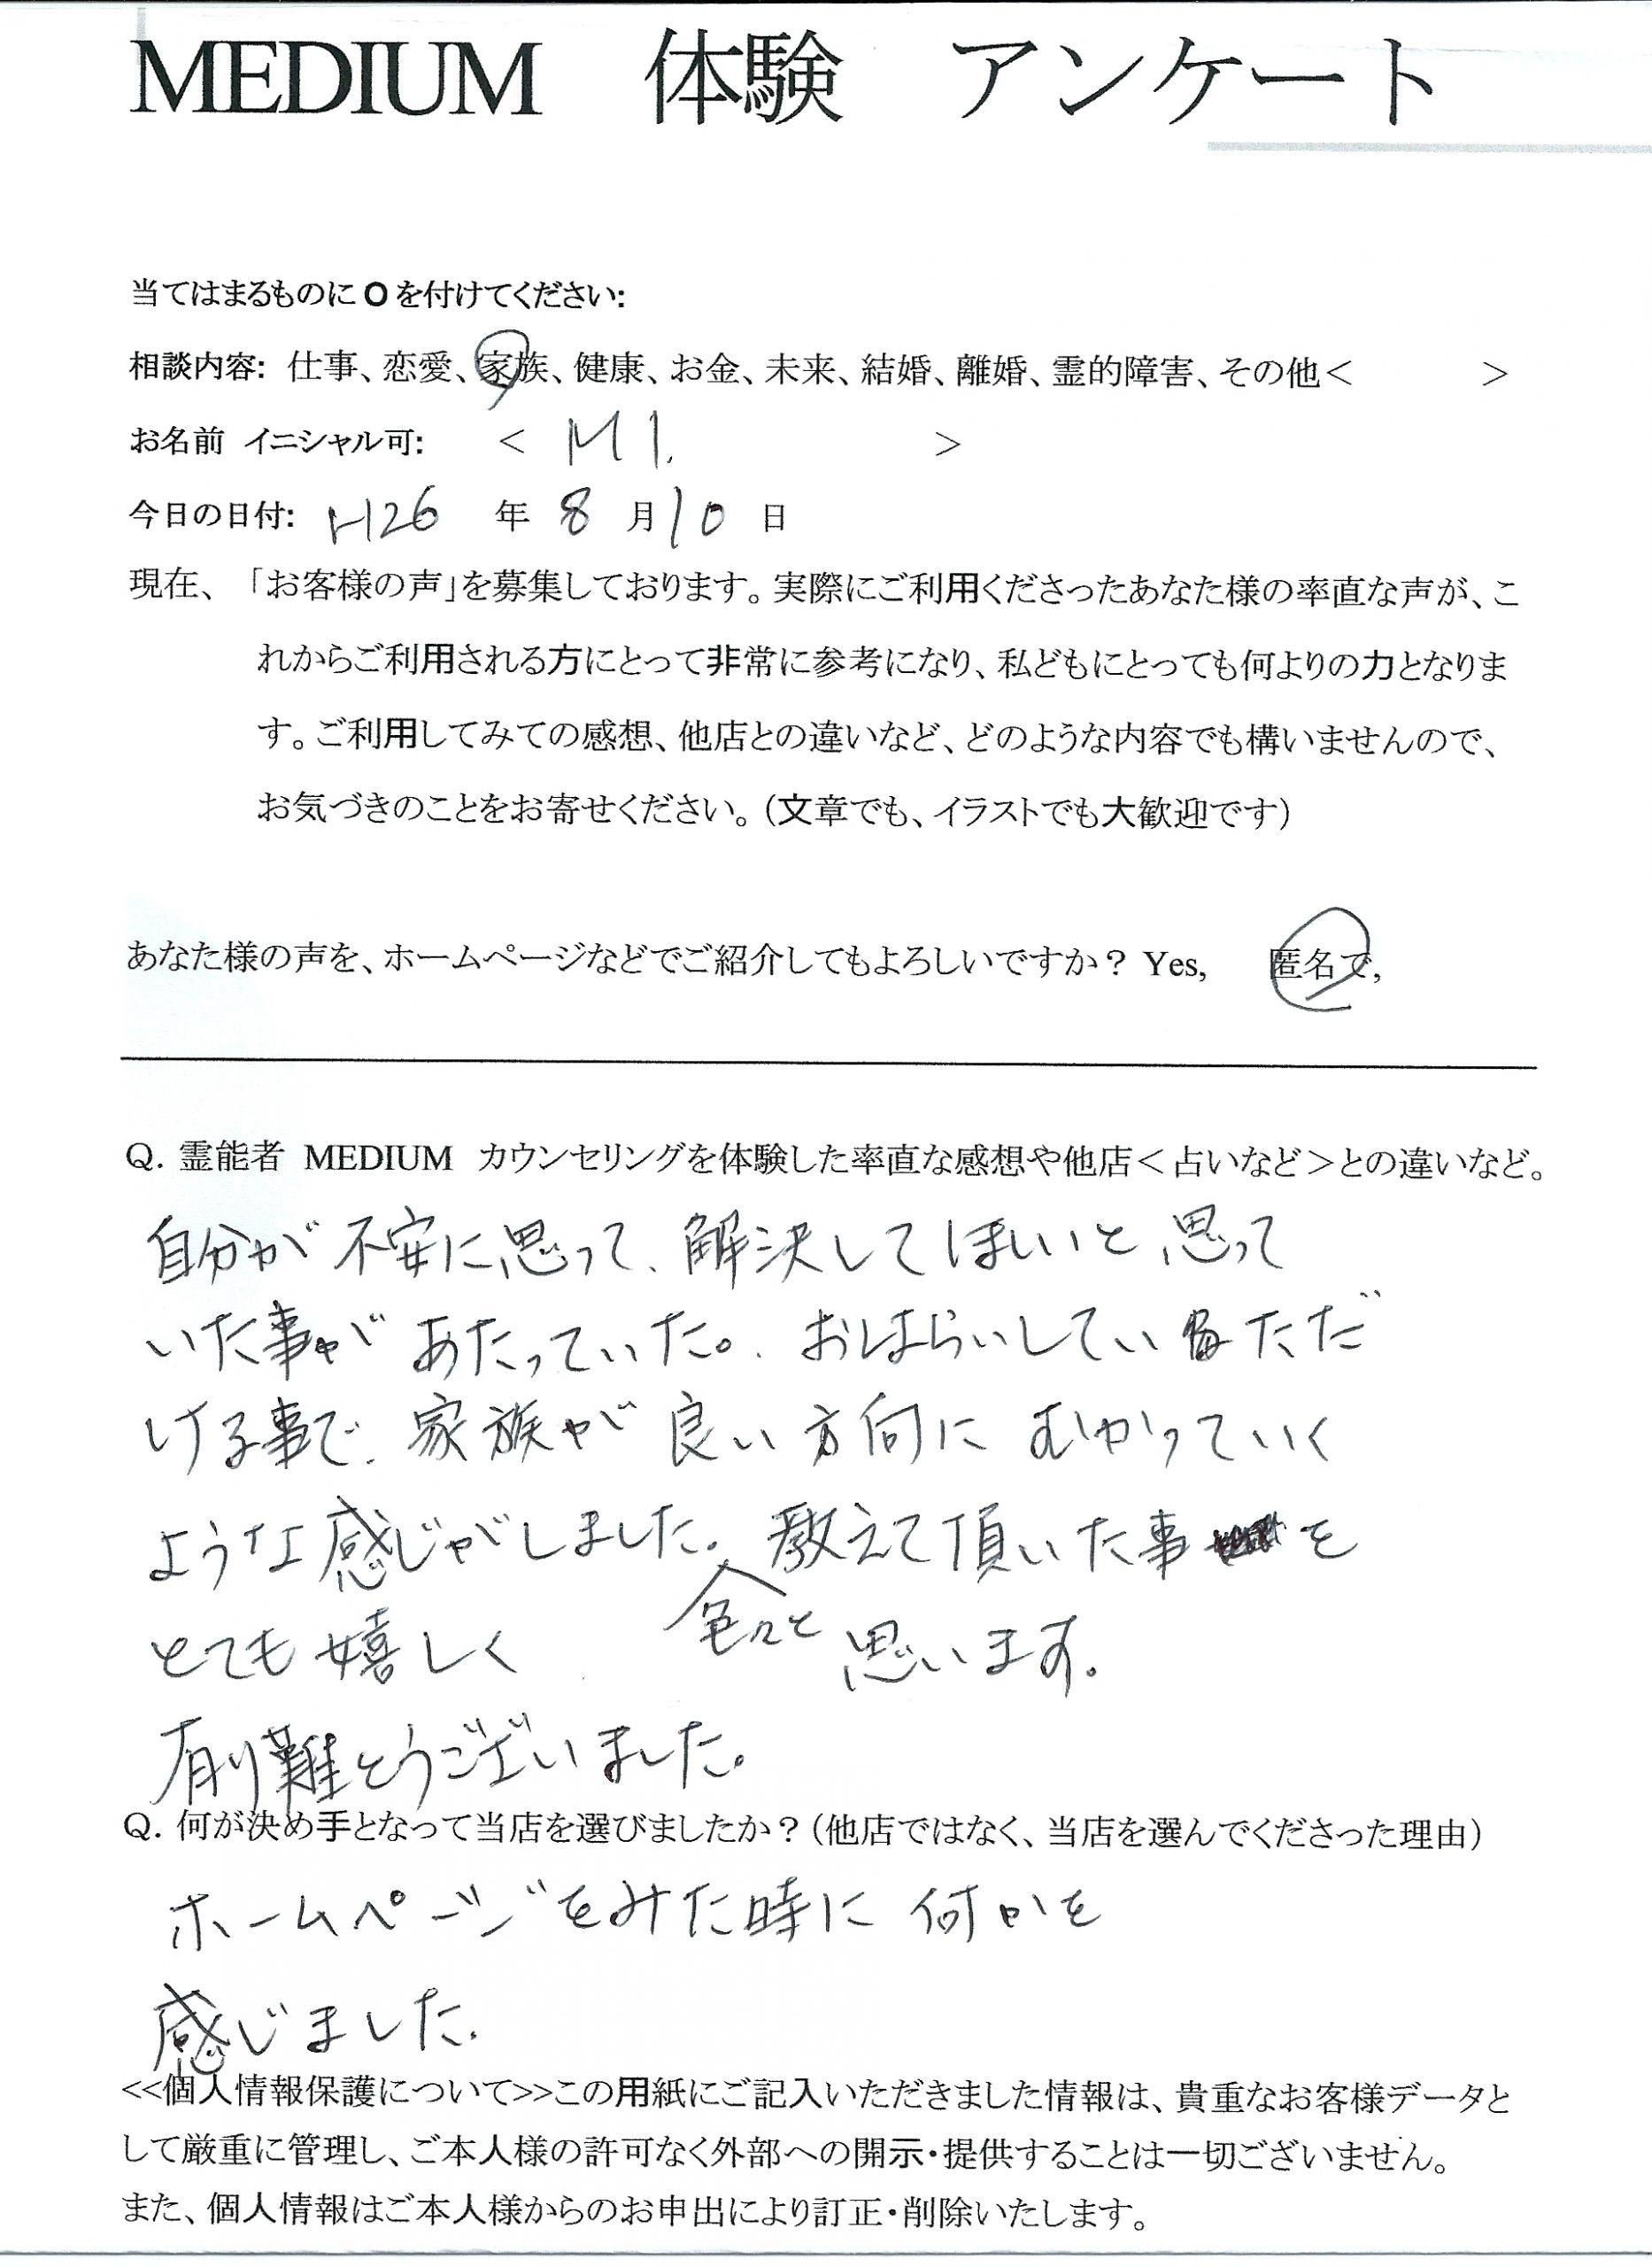 MEDIUM 体験 アンケート
当てはまるものに O を付けてください:
相談内容: 仕事、恋愛、家族、健康、お金、未来、結婚、離婚、霊的障害、その他< >
お名前 イニシャル可: < M I. >
今日の日付: H26 年 8 月 10 日
現在、「お客様の声」を募集しております。実際にご利用くださったあなた様の率直な声が、こ
れからご利用される方にとって非常に参考になり、私どもにとっても何よりの力となりま
す。ご利用してみての感想、他店との違いなど、どのような内容でも構いませんので、
お気づきのことをお寄せください。(文章でも、イラストでも大歓迎です)
あなた様の声を、ホームページなどでご紹介してもよろしいですか? Yes, 匿名で,
Q. 霊能者 MEDIUM カウンセリングを体験した率直な感想や他店<占いなど>との違いなど。
自分が不安に思って、解決してほしいと思って
いた事があたっていた。おはらいしていただ
ける事で、家族が良い方向にむかっていく
ような感じがしました。教えて頂いた事を
とても嬉しく 色々と 思います。
有り難とうございました。
Q. 何が決め手となって当店を選びましたか?(他店ではなく、当店を選んでくださった理由)
ホームページをみた時に何かを
感じました.
<<個人情報保護について>>この用紙にご記入いただきました情報は、貴重なお客様データと
して厳重に管理し、ご本人様の許可なく外部への開示・提供することは一切ございません。
また、個人情報はご本人様からのお申出により訂正・削除いたします。